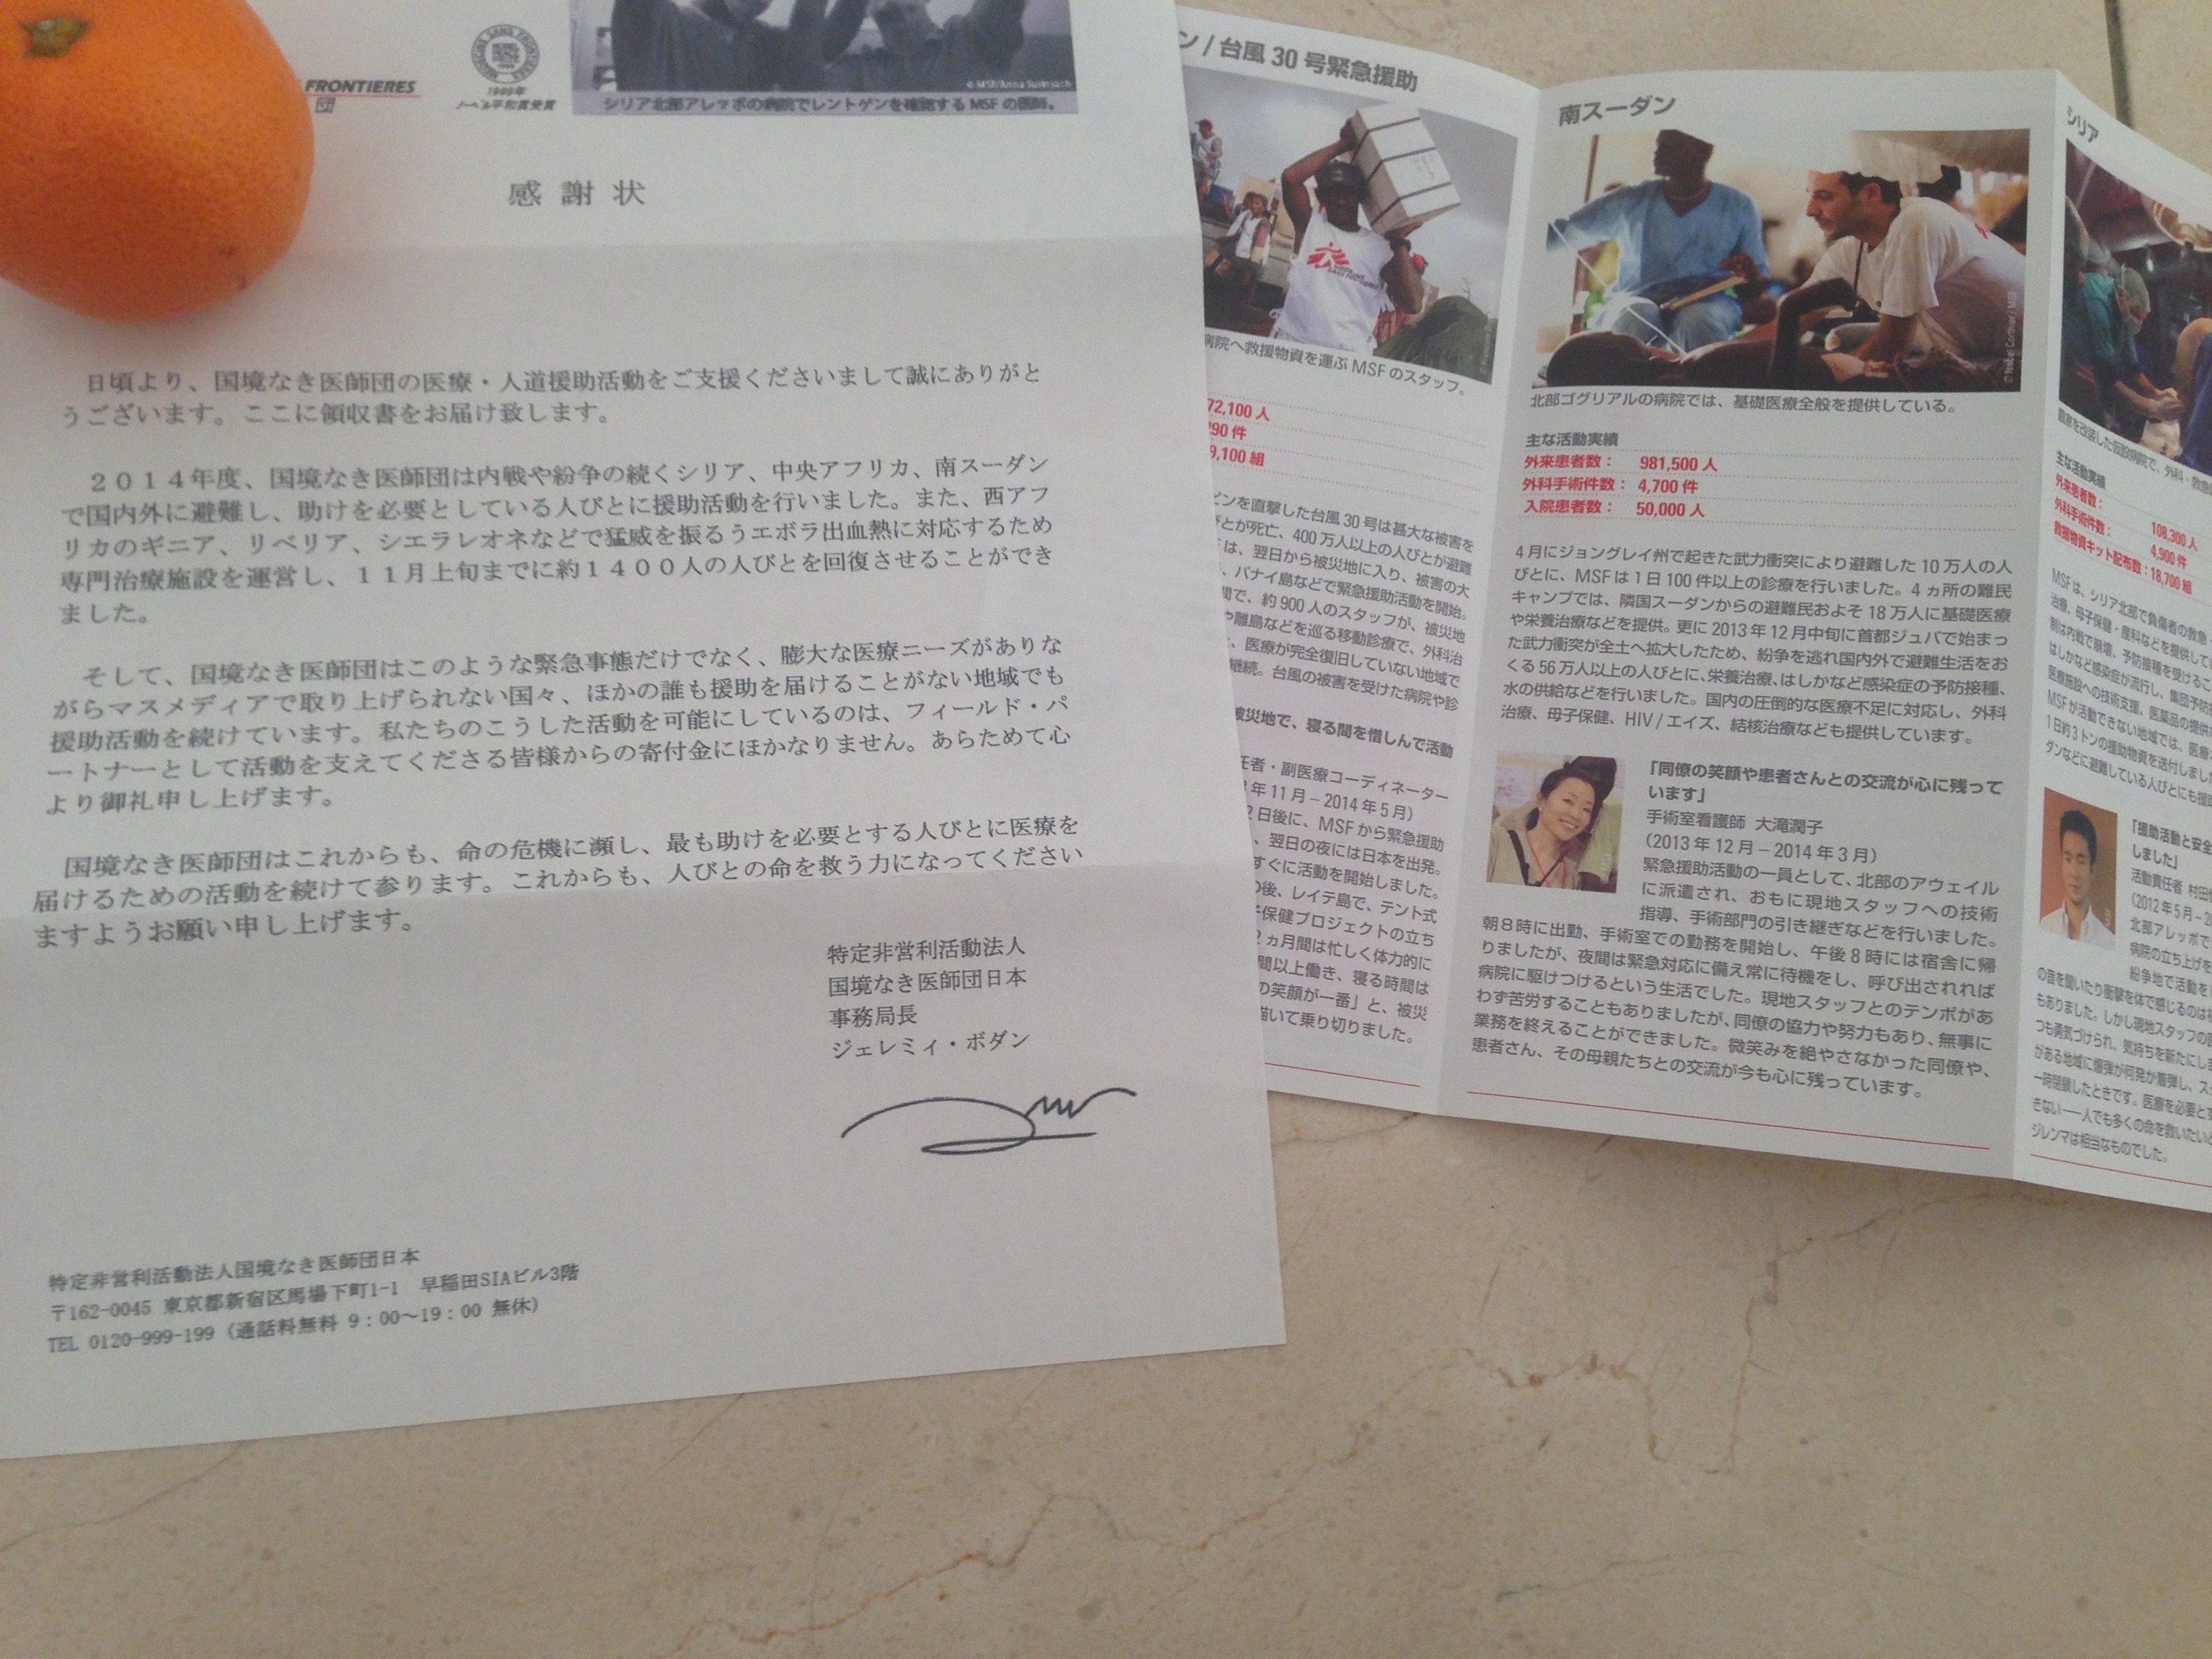 FRONTIERES
団
MEDECINS SANS FRONTIERES
1999年
ノーベル平和賞受賞
© MSF/Anna Surinyach
シリア北部アレッポの病院でレントゲンを確認する MSF の医師。
感 謝 状
日頃より、国境なき医師団の医療・人道援助活動をご支援くださいまして誠にありがと
うございます。ここに領収書をお届け致します。
２０１４年度、国境なき医師団は内戦や紛争の続くシリア、中央アフリカ、南スーダン
で国内外に避難し、助けを必要としている人びとに援助活動を行いました。また、西アフ
リカのギニア、リベリア、シエラレオネなどで猛威を振るうエボラ出血熱に対応するため
専門治療施設を運営し、１１月上旬までに約１４００人の人びとを回復させることができ
ました。
そして、国境なき医師団はこのような緊急事態だけでなく、膨大な医療ニーズがありな
がらマスメディアで取り上げられない国々、ほかの誰も援助を届けることがない地域でも
援助活動を続けています。私たちのこうした活動を可能にしているのは、フィールド・パ
ートナーとして活動を支えてくださる皆様からの寄付金にほかなりません。あらためて心
より御礼申し上げます。
国境なき医師団はこれからも、命の危機に瀕し、最も助けを必要とする人びとに医療を
届けるための活動を続けて参ります。これからも、人びとの命を救う力になってください
ますようお願い申し上げます。
特定非営利活動法人
国境なき医師団日本
事務局長
ジェレミィ・ボダン
特定非営利活動法人国境なき医師団日本
〒162-0045 東京都新宿区馬場下町1-1 早稲田SIAビル3階
TEL 0120-999-199 (通話料無料 9：00〜19：00 無休)
ン / 台風 30 号緊急援助
病院へ救援物資を運ぶ MSF のスタッフ。
72,100 人
290 件
9,100 組
ピンを直撃した台風 30 号は甚大な被害を
びとが死亡、400 万人以上の人びとが避難
は、翌日から被災地に入り、被害の大
、パナイ島などで緊急援助活動を開始。
間で、約 900 人のスタッフが、被災地
や離島などを巡る移動診療で、外科治
、医療が完全復旧していない地域で
継続。台風の被害を受けた病院や診
被災地で、寝る間を惜しんで活動
任者・副医療コーディネーター
年 11 月 – 2014 年 5 月）
2 日後に、MSF から緊急援助
、翌日の夜には日本を出発。
すぐに活動を開始しました。
の後、レイテ島で、テント式
子保健プロジェクトの立ち
2 ヵ月間は忙しく体力的に
間以上働き、寝る時間は
の笑顔が一番」と、被災
描いて乗り切りました。
南スーダン
北部ゴグリアルの病院では、基礎医療全般を提供している。
主な活動実績
外来患者数： 981,500 人
外科手術件数： 4,700 件
入院患者数： 50,000 人
4 月にジョングレイ州で起きた武力衝突により避難した 10 万人の人
びとに、MSF は 1 日 100 件以上の診療を行いました。4 ヵ所の難民
キャンプでは、隣国スーダンからの避難民およそ 18 万人に基礎医療
や栄養治療などを提供。更に 2013 年 12 月中旬に首都ジュバで始まっ
た武力衝突が全土へ拡大したため、紛争を逃れ国内外で避難生活をお
くる 56 万人以上の人びとに、栄養治療、はしかなど感染症の予防接種、
水の供給などを行いました。国内の圧倒的な医療不足に対応し、外科
治療、母子保健、HIV / エイズ、結核治療なども提供しています。
「同僚の笑顔や患者さんとの交流が心に残って
います」
手術室看護師 大滝潤子
（2013 年 12 月 – 2014 年 3 月）
緊急援助活動の一員として、北部のアウェイル
に派遣され、おもに現地スタッフへの技術
指導、手術部門の引き継ぎなどを行いました。
朝 8 時に出勤、手術室での勤務を開始し、午後 8 時には宿舎に帰
りましたが、夜間は緊急対応に備え常に待機をし、呼び出されれば
病院に駆けつけるという生活でした。現地スタッフとのテンポがあ
わず苦労することもありましたが、同僚の協力や努力もあり、無事に
業務を終えることができました。微笑みを絶やさなかった同僚や、
患者さん、その母親たちとの交流が今も心に残っています。
シリア
農家を改装した仮設病院で、外科・
主な活動実績
外来患者数： 108,300 人
外科手術件数： 4,900 件
救援物資キット配布数：18,700 組
MSF は、シリア北部で負傷者の救急
治療、母子保健・産科などを提供して
制は内戦で崩壊、予防接種を受けるこ
はしかなど感染症が流行し、集団予防
医療施設への技術支援、医薬品の提供
MSF が活動できない地域では、医療
1 日約 3 トンの援助物資を送付しました
ダンなどに避難している人びとにも援
「援助活動と安全
しました」
活動責任者 村田
（2012 年 5 月 –
北部アレッポで
病院の立ち上げを
紛争地で活動を
の音を聞いたり衝撃を体で感じるのは
もありました。しかし現地スタッフの
つも勇気づけられ、気持ちを新たにしま
がある地域に爆弾が何発か着弾し、ス
一時閉鎖したときです。医療を必要とす
きない――人でも多くの命を救いたい
ジレンマは相当なものでした。